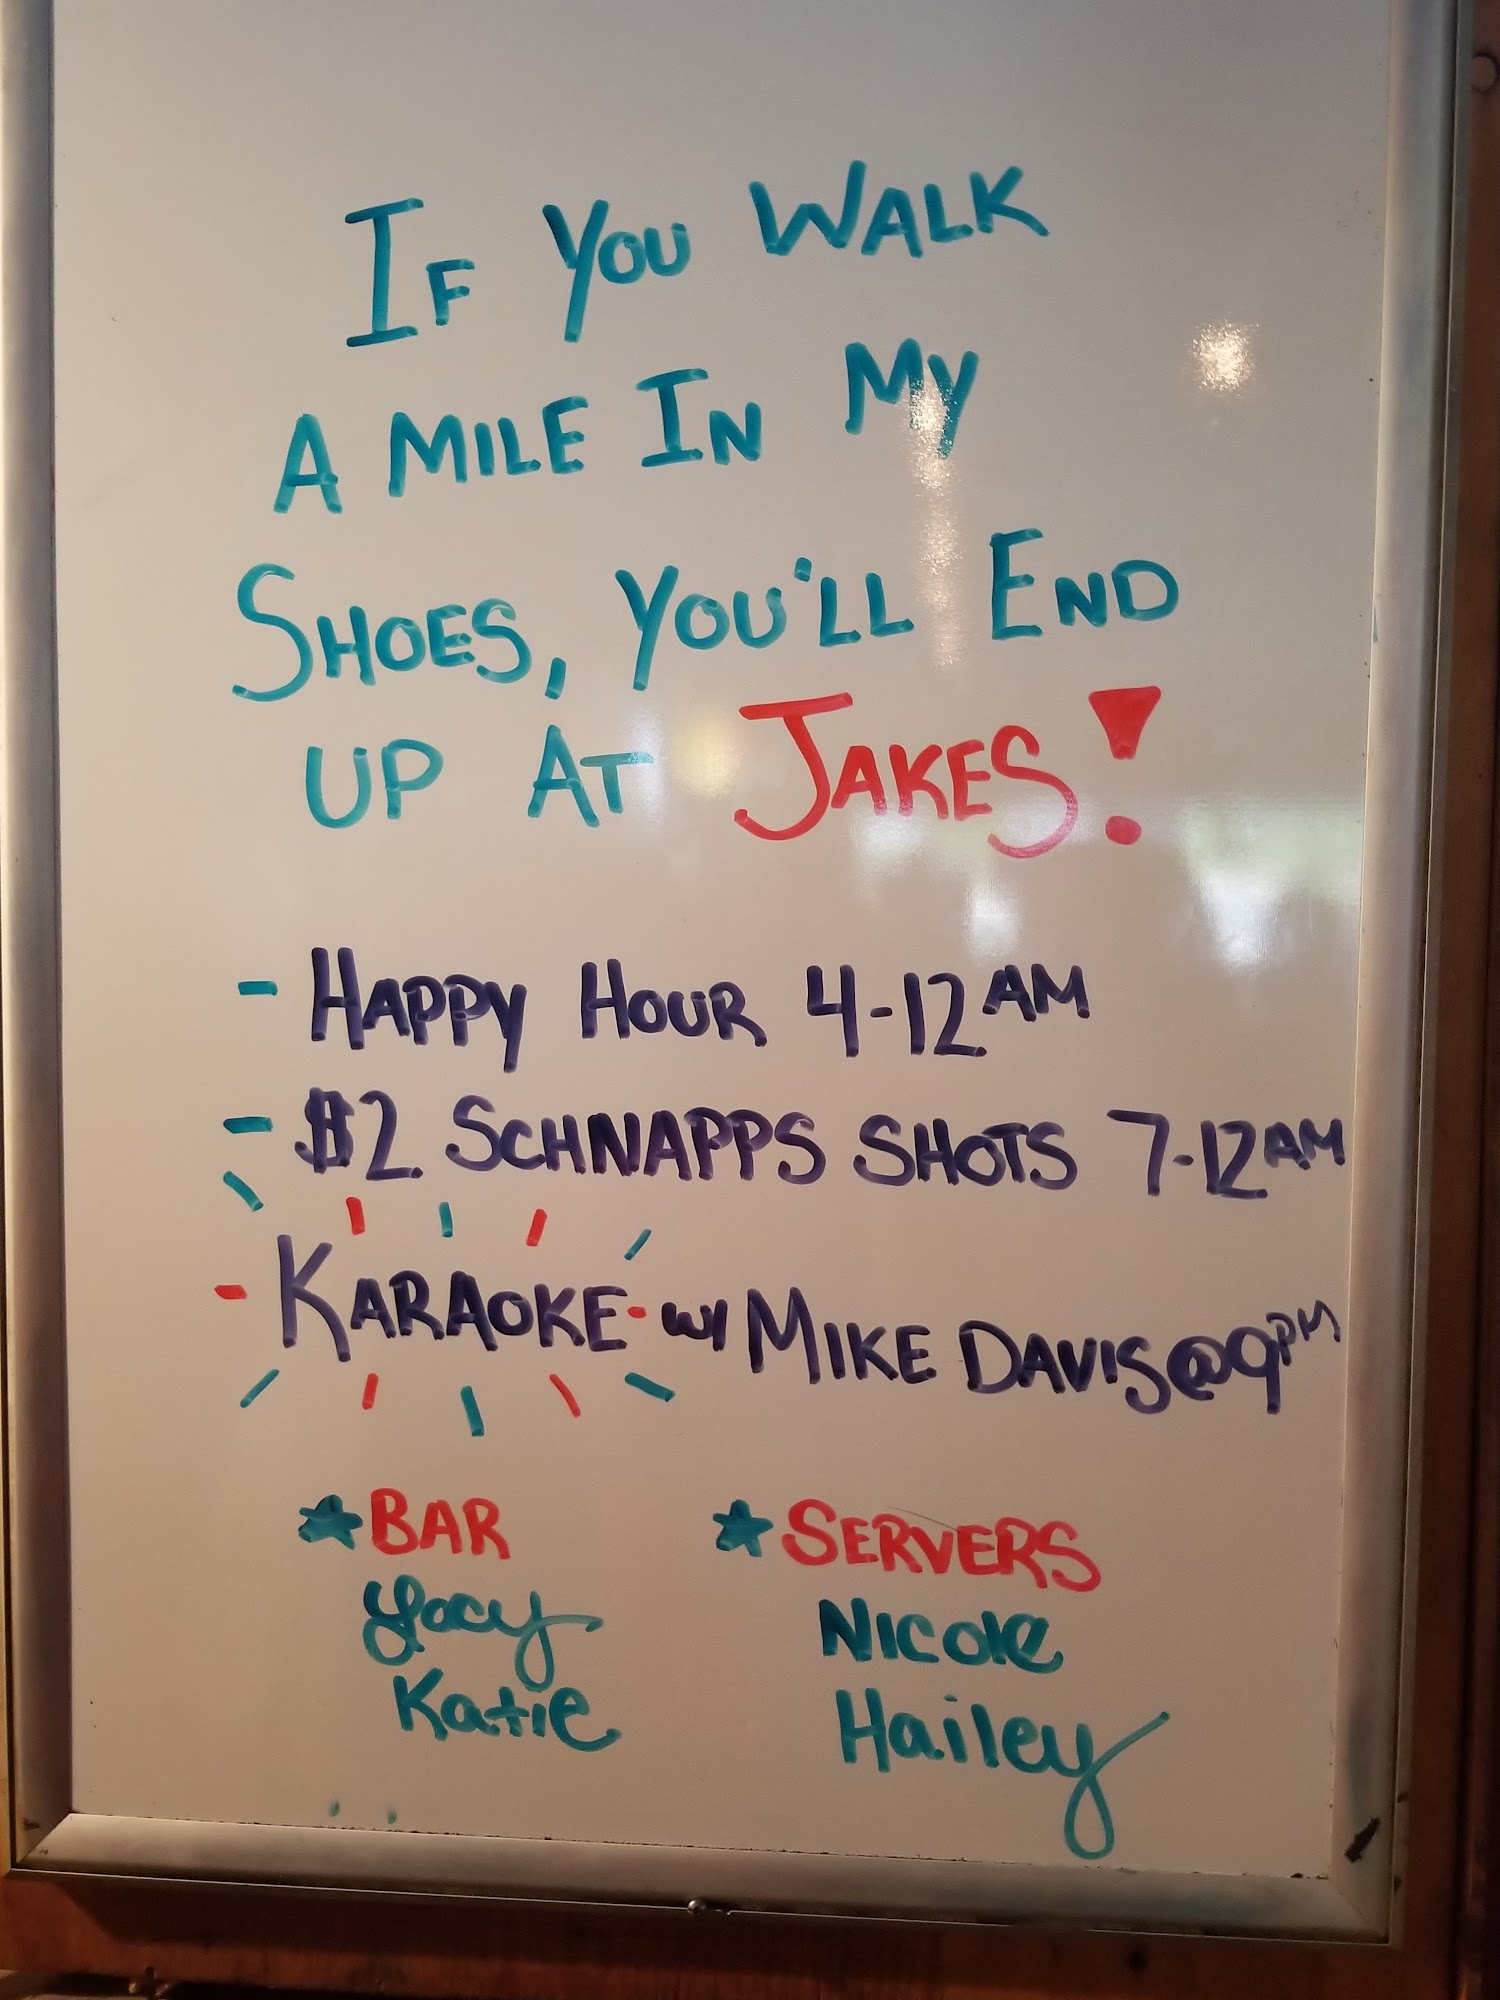 If You Walk
A Mile In My
Shoes, You'll End
Up At Jakes!
- Happy Hour 4-12AM
- $2 Schnapps Shots 7-12AM
- Karaoke - w/ Mike Davis @ 9PM
★ Bar
Lacy
Katie
★ Servers
Nicole
Hailey